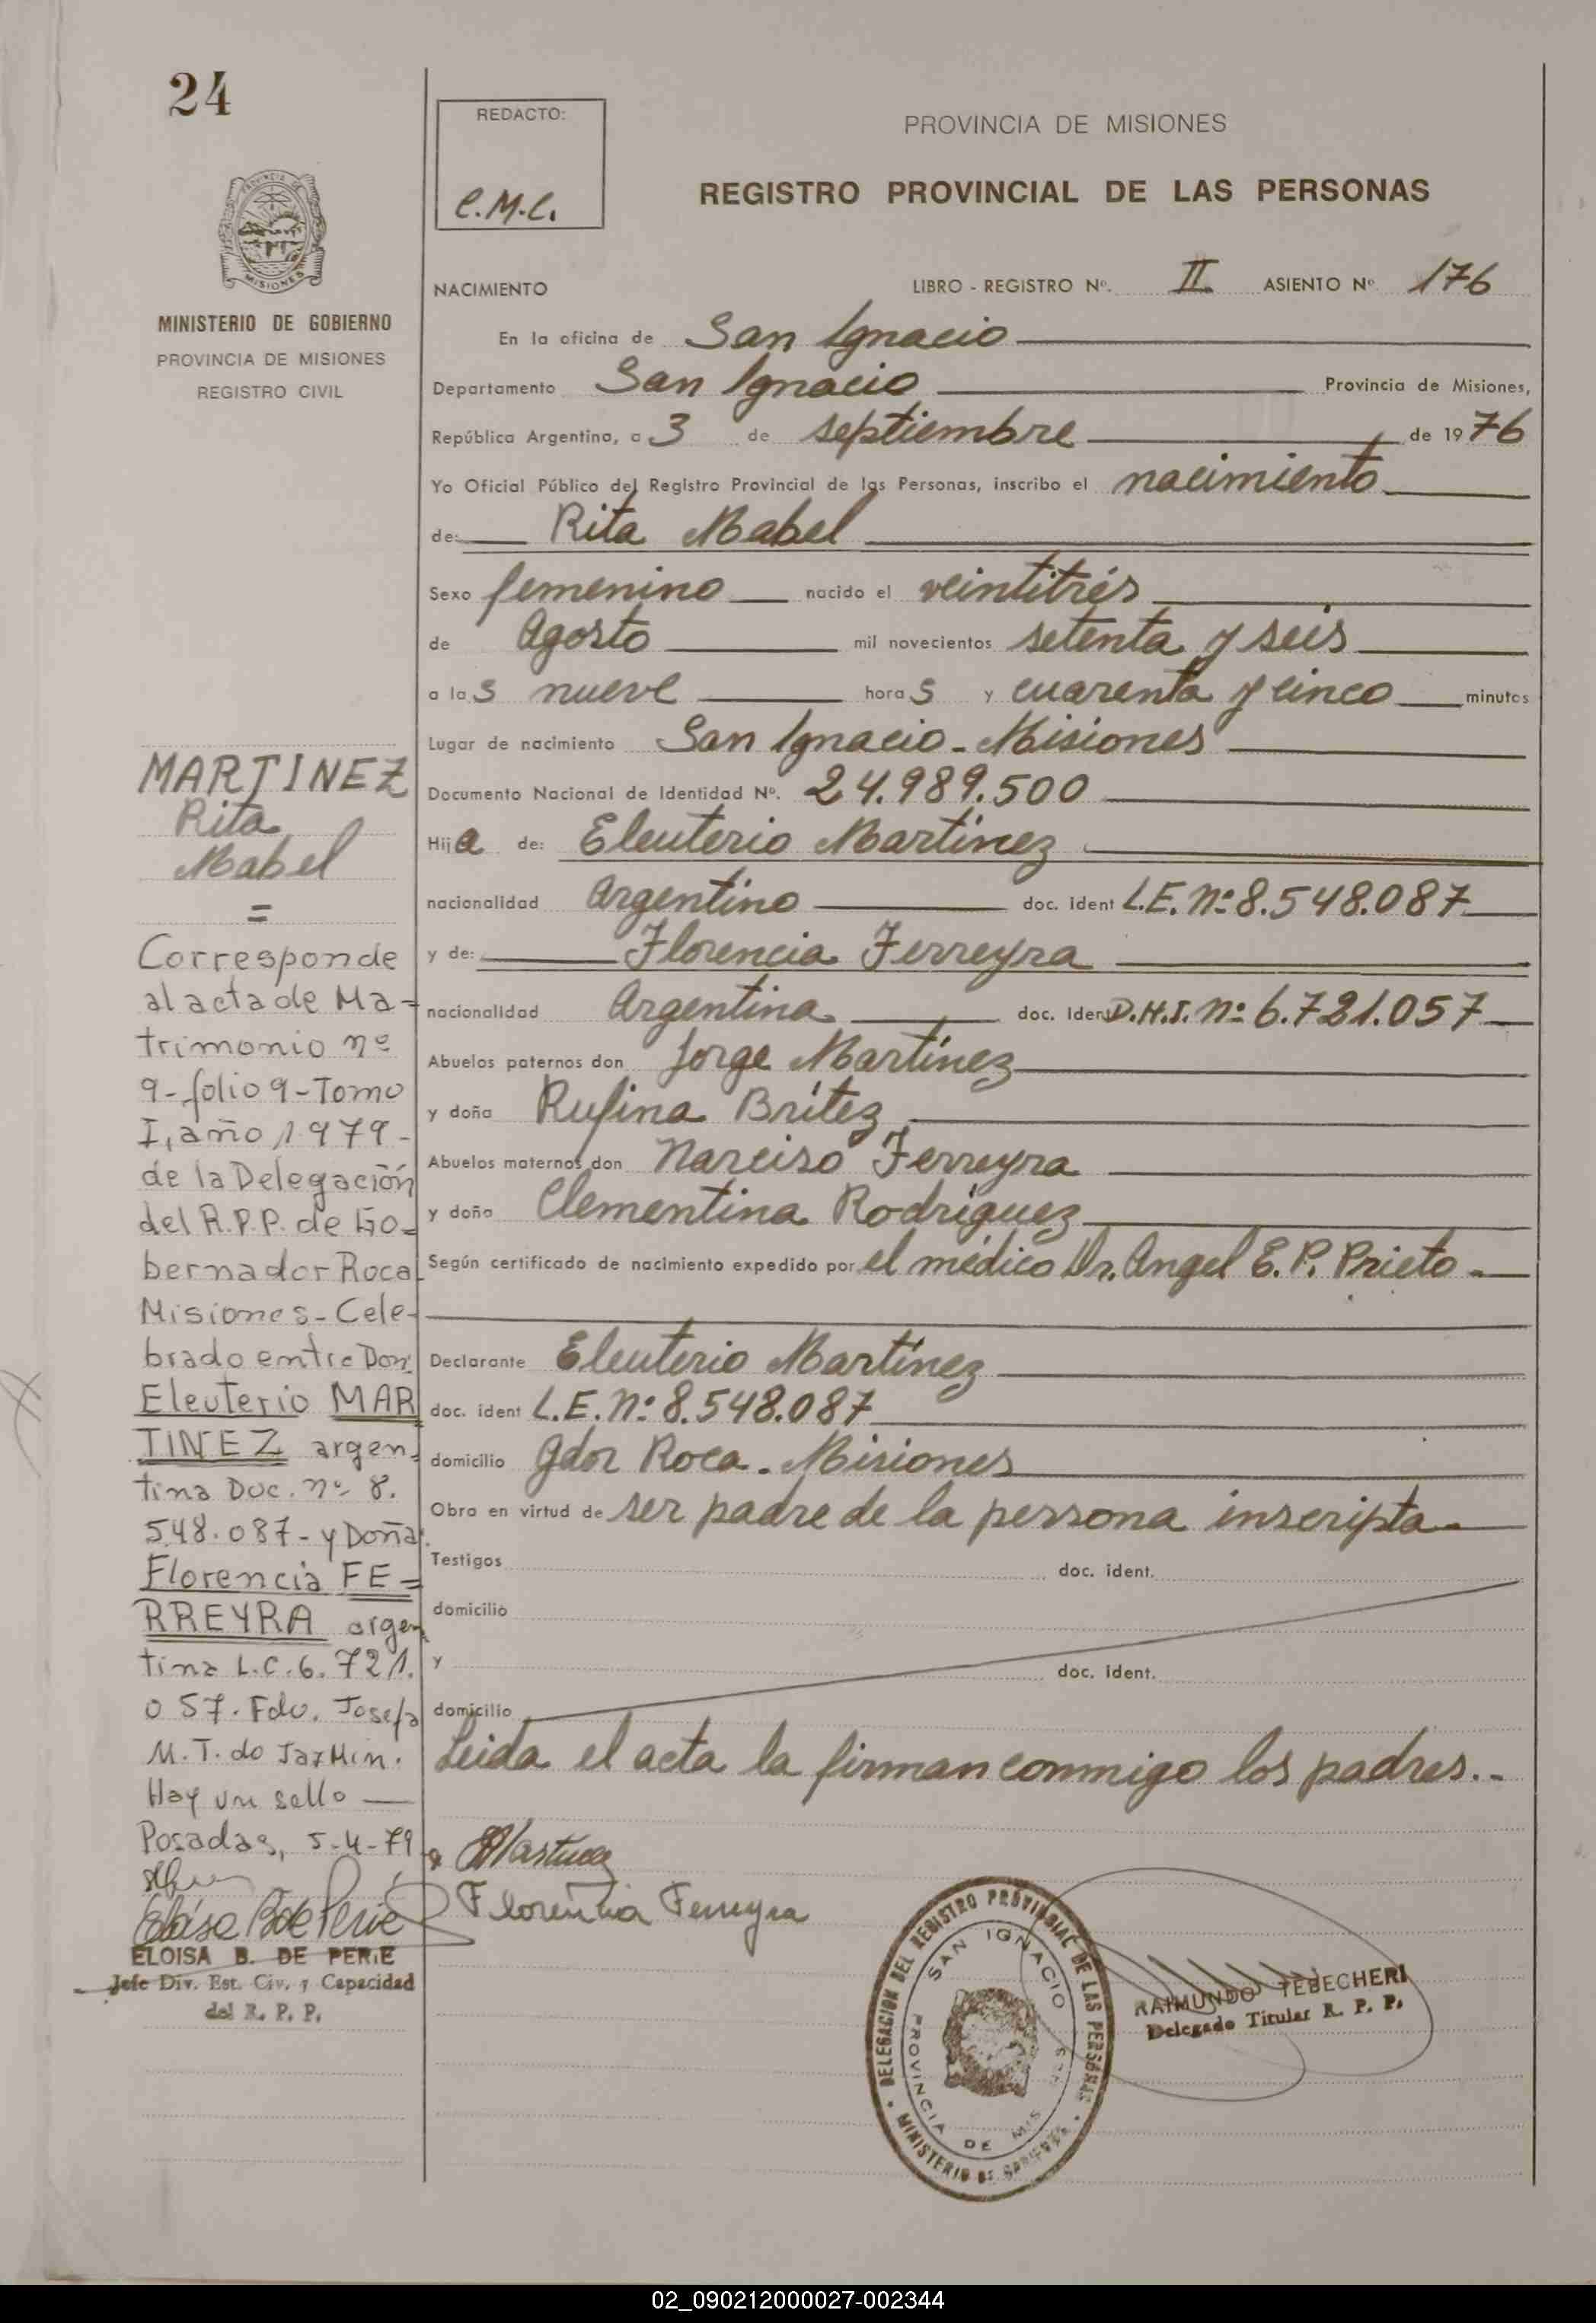 24
REDACTO:
C.M.C.
PROVINCIA DE MISIONES
REGISTRO PROVINCIAL DE LAS PERSONAS
MISIONES
MINISTERIO DE GOBIERNO
PROVINCIA DE MISIONES
REGISTRO CIVIL
NACIMIENTO LIBRO - REGISTRO Nº. II ASIENTO Nº 176
En la oficina de San Ignacio
Departamento San Ignacio Provincia de Misiones,
República Argentina, a 3 de septiembre de 1976
Yo Oficial Público del Registro Provincial de las Personas, inscribo el nacimiento
de: Rita Mabel
Sexo femenino nacido el veintitrés
de Agosto mil novecientos setenta y seis
a las nueve horas y cuarenta y cinco minutos
Lugar de nacimiento San Ignacio - Misiones
Documento Nacional de Identidad Nº. 24.989.500
Hija de: Eleuterio Martínez
nacionalidad Argentino doc. ident L.E. Nº 8.548.087
y de: Florencia Ferreyra
nacionalidad Argentina doc. iden D.N.I. Nº 6.721.057
Abuelos paternos don Jorge Martínez
y doña Rufina Brítez
Abuelos maternos don Narciso Ferreyra
y doña Clementina Rodríguez
Según certificado de nacimiento expedido por el médico Dr. Angel E.P. Prieto -
Declarante Eleuterio Martínez
doc. ident L.E. Nº 8.548.087
domicilio Gdor Roca - Misiones
Obra en virtud de ser padre de la persona inscripta -
Testigos doc. ident.
domicilio
y doc. ident.
domicilio
Leida el acta la firman conmigo los padres.-
Florencia Ferreyra
MARTINEZ
Rita
Mabel
=
Corresponde
al acta de Ma-
trimonio nº
9-folio 9-Tomo
I, año 1979-
de la Delegación
del R.P.P. de Go=
bernador Roca
Misiones - Cele-
brado entre Don
Eleuterio MAR
TINEZ argen-
tina Doc. nº 8.
548.087- y Doña
Florencia FE=
RREYRA argen
tina L.C. 6.721.
057. Fdo. Josefa
M. T. do
Hay un sello
Posadas, 5-4-79
ELOISA B. DE PERIE
Jefe Div. Est. Civ. y Capacidad
del R. P. P.
DELEGACION DEL REGISTRO PROVINCIAL DE LAS PERSONAS
SAN IGNACIO
PROVINCIA DE MISIONES
MINISTERIO DE GOBIERNO
RAIMUNDO TEBECHERI
Delegado Titular R. P. P.
02_090212000027-002344